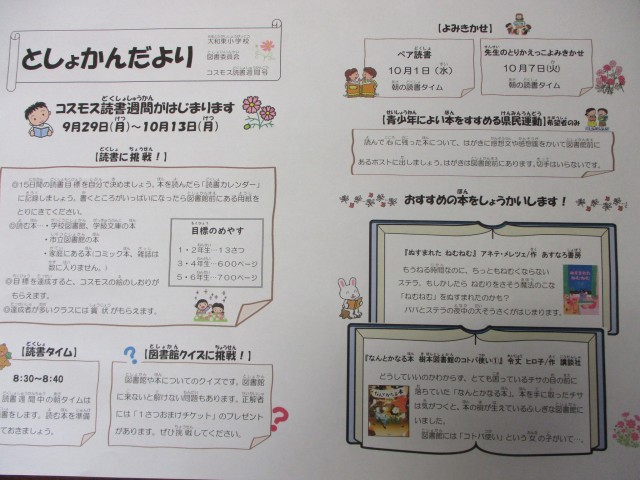 としょかんだより
大和東小学校
図書委員会
コスモス読書週間号
コスモス読書週間がはじまります
9月29日(月)~10月13日(月)
【読書に挑戦!】
◎15日間の読書目標を自分で決めましょう。本を読んだら「読書カレンダー」
に記録しましょう。書くところがいっぱいになったら図書館前にある用紙を
とりにきてください。
◎読む本・・学校図書館、学級文庫の本
・市立図書館の本
・家庭にある本(コミック本、雑誌は
数に入りません。)
◎目標を達成すると、コスモスの絵のしおりが
もらえます。
◎達成者が多いクラスには賞状がもらえます。
目標のめやす
1・2年生…13さつ
3・4年生…600ページ
5・6年生…700ページ
【読書タイム】
8:30~8:40
読書週間中の朝タイムは
読書をします。読む本を準備
しておきましょう。
【図書館クイズに挑戦!】
図書館や本についてのクイズです。図書館
に来ないと解けない問題もあります。正解者
には「1さつおまけチケット」のプレゼント
があります。ぜひ挑戦してください。
【よみきかせ】
ペア読書
10月1日(水)
朝の読書タイム
先生のとりかえっこよみきかせ
10月7日(火)
朝の読書タイム
【青少年によい本をすすめる県民運動】希望者のみ
読んで心に残った本について、はがきに感想文や感想画をかいて図書館前に
あるポストに出しましょう。はがきは図書館前にあります。切手はいらないです。
おすすめの本をしょうかいします!
『ぬすまれた ねむねむ』アネテ・メレツェ/作 あすなろ書房
もうねる時間なのに、ちっともねむくならない
ステラ。もしかしたら ねむりをさそう魔法のこな
「ねむねむ」をぬすまれたのかも?
パパとステラの夜中の大ぞうさくがはじまります。
『なんとかなる本 樹本図書館のコトバ使い1』令丈 ヒロ子/作 講談社
どうしていいのかわからず、とても困っているチサの目の前に
落ちていた「なんとかなる本」。本を手に取ったチサ
は気がつくと、本の樹が生えているふしぎな図書館に
いました。
図書館には「コトバ使い」という女の子がいて…。